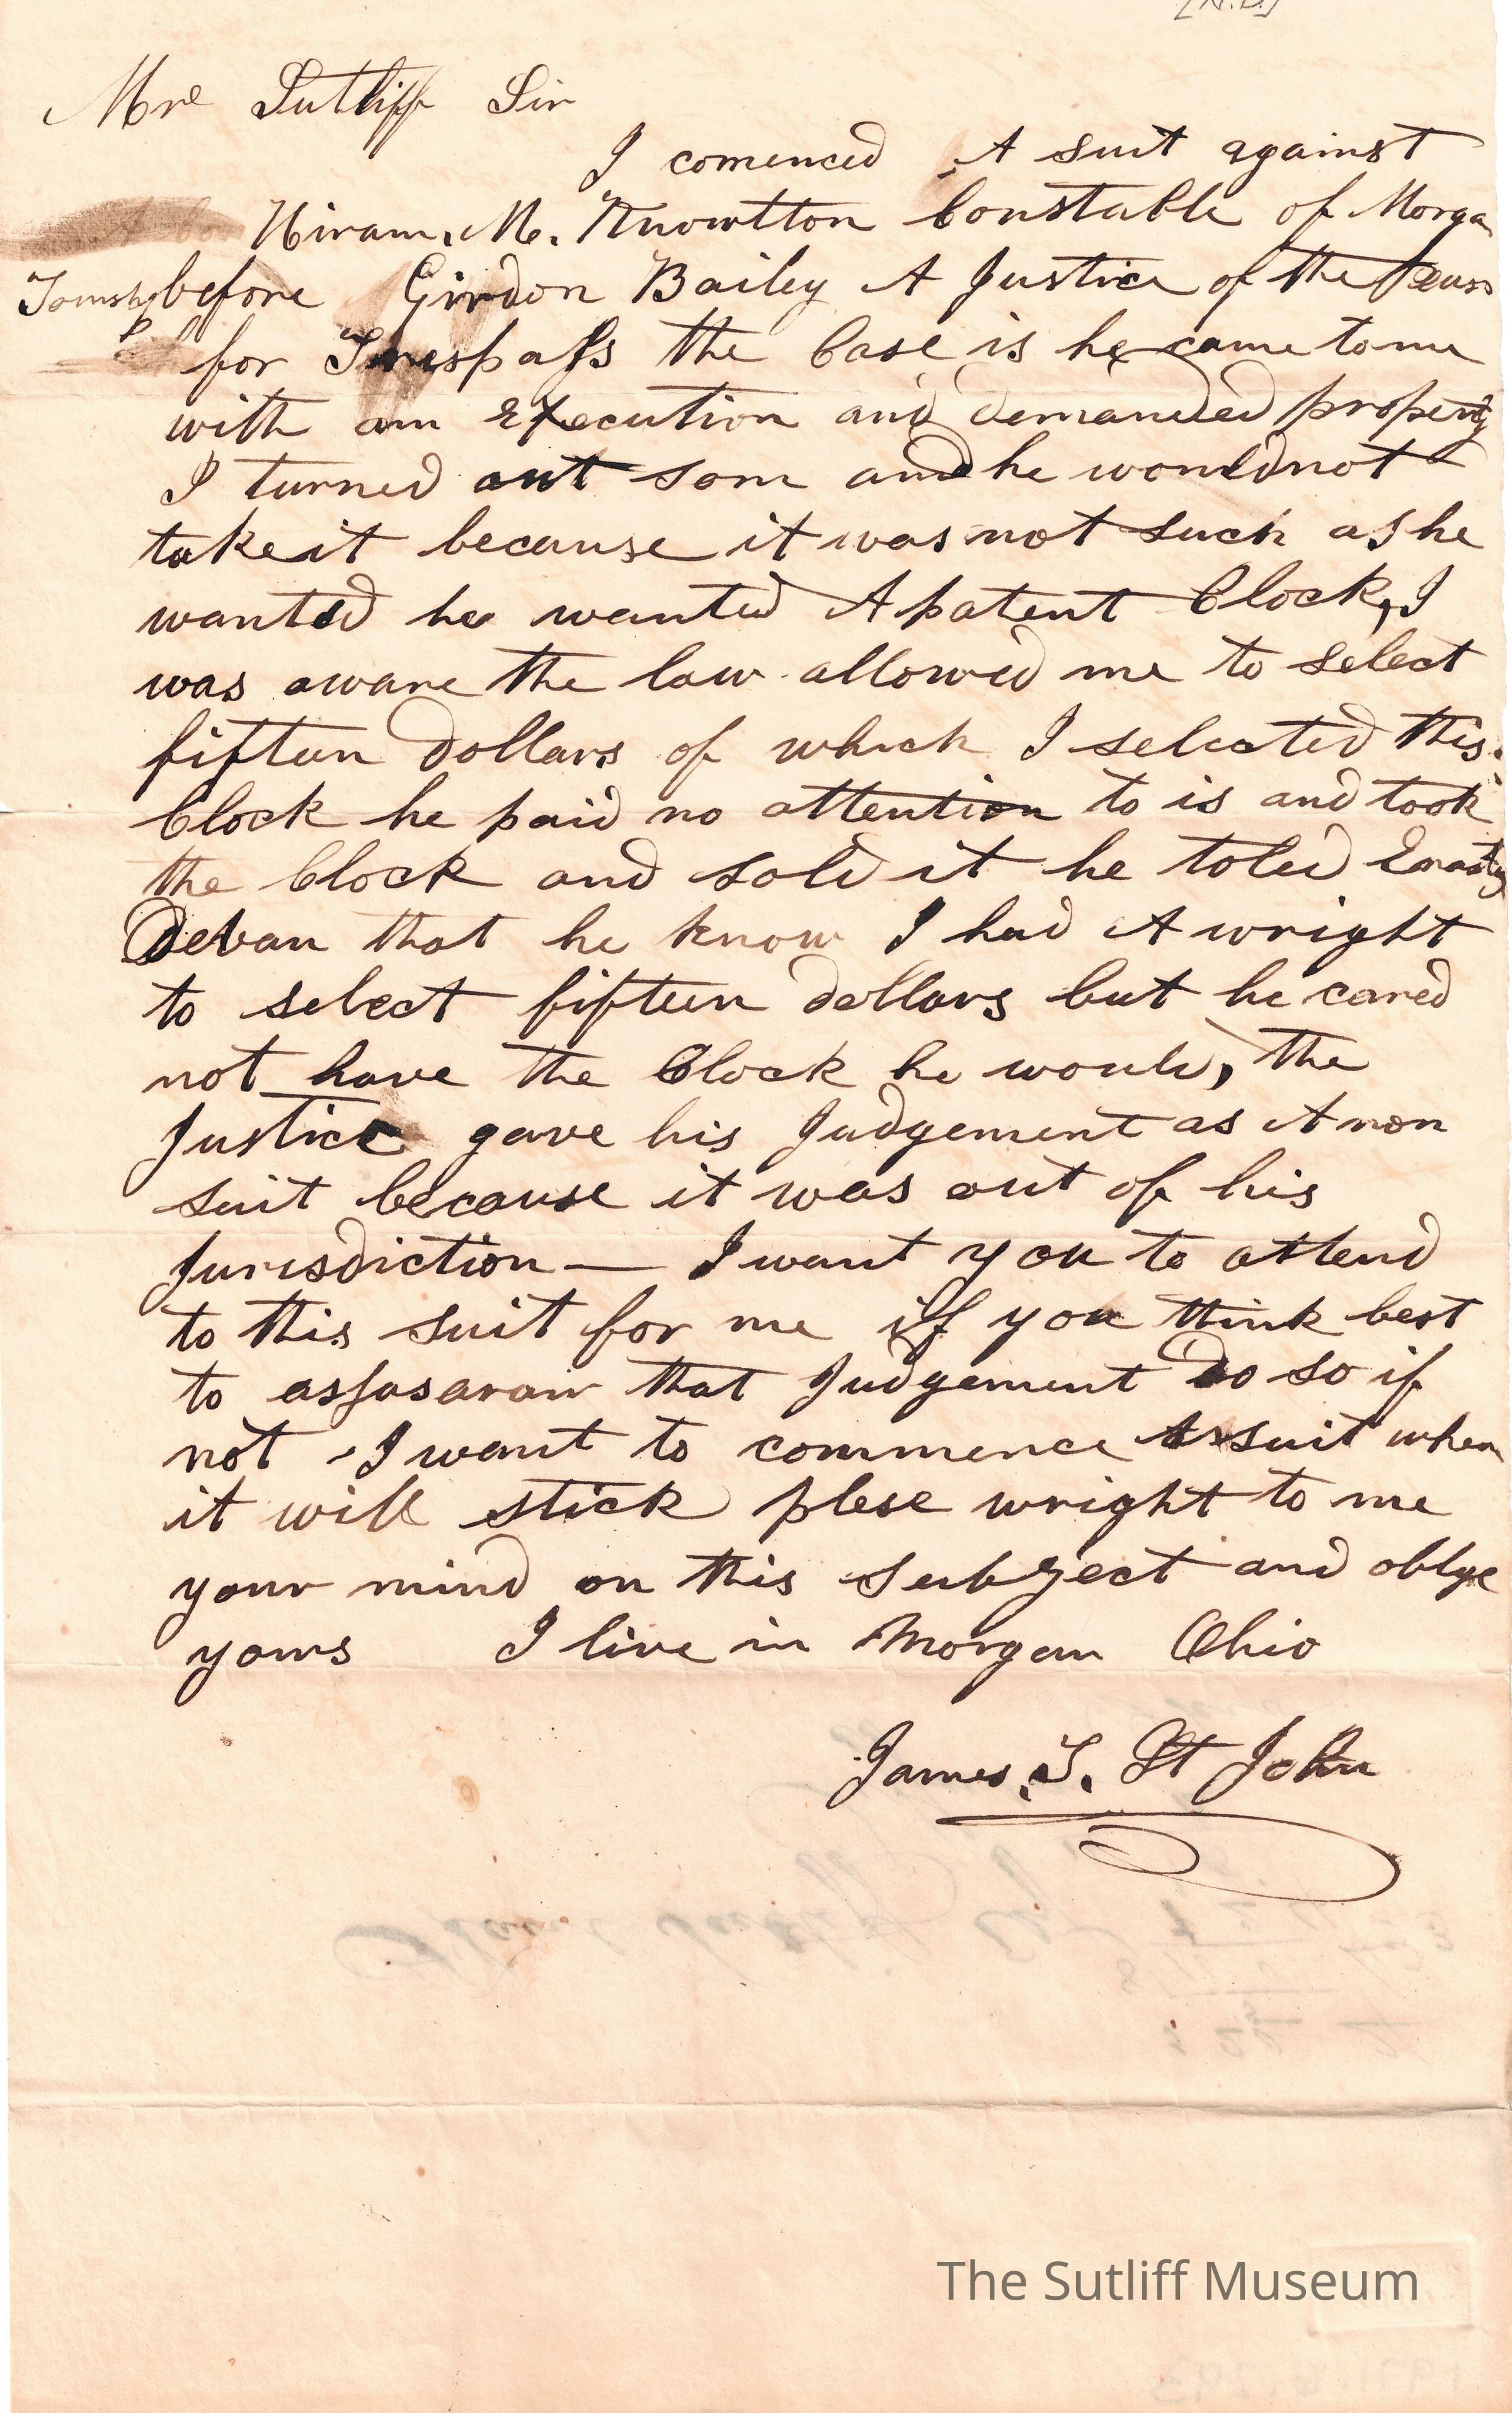 [N.D.]
Mre Sutliff Sir
I comenced A suit against
Hiram. M. Knowlton Constable of Morga
Township before Girdon Bailey A Justice of the Peas
for Trespass the Case is he came to me
with an Execution and demanded property
I turned out som and he would not
take it because it was not such as he
wanted he wanted A patent Clock, I
was aware the law allowed me to select
fifteen dollars of which I selected this
Clock he paid no attention to is and took
the Clock and sold it he toled
that he know I had A wright
to select fifteen dollars but he cared
not have the Clock he would, the
Justice gave his Judgement as A non
suit because it was out of his
Jurisdiction — I want you to attend
to this suit for me if you think best
to that Judgement do so if
not I want to commence A suit when
it will stick plese wright to me
your mind on this Subject and oblge
yours I live in Morgan Ohio
James. S. St John
The Sutliff Museum